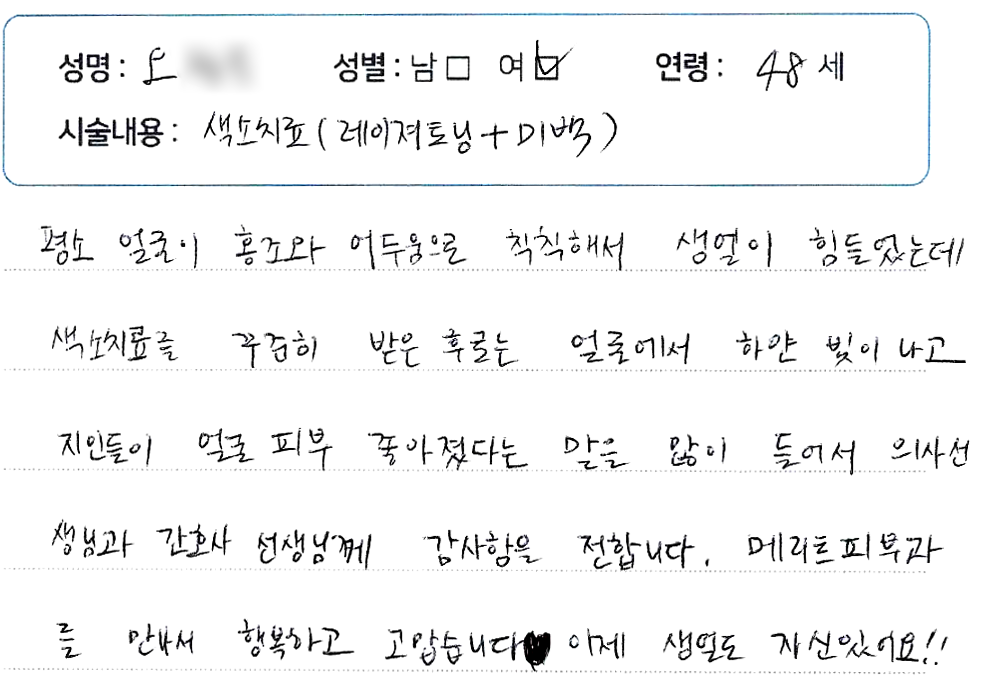 성명: 오 성별: 남 □ 여 ☑ 연령: 48 세
시술내용: 색소치료(레이져토닝+미백)
평소 얼굴이 홍조와 어두움으로 칙칙해서 생얼이 힘들었는데
색소치료를 꾸준히 받은 후로는 얼굴에서 하얀 빛이 나고
지인들이 얼굴 피부 좋아졌다는 말을 많이 들어서 의사선
생님과 간호사 선생님께 감사함을 전합니다. 메리트피부과
를 만나서 행복하고 고맙습니다♥ 이제 생얼도 자신있어요!!